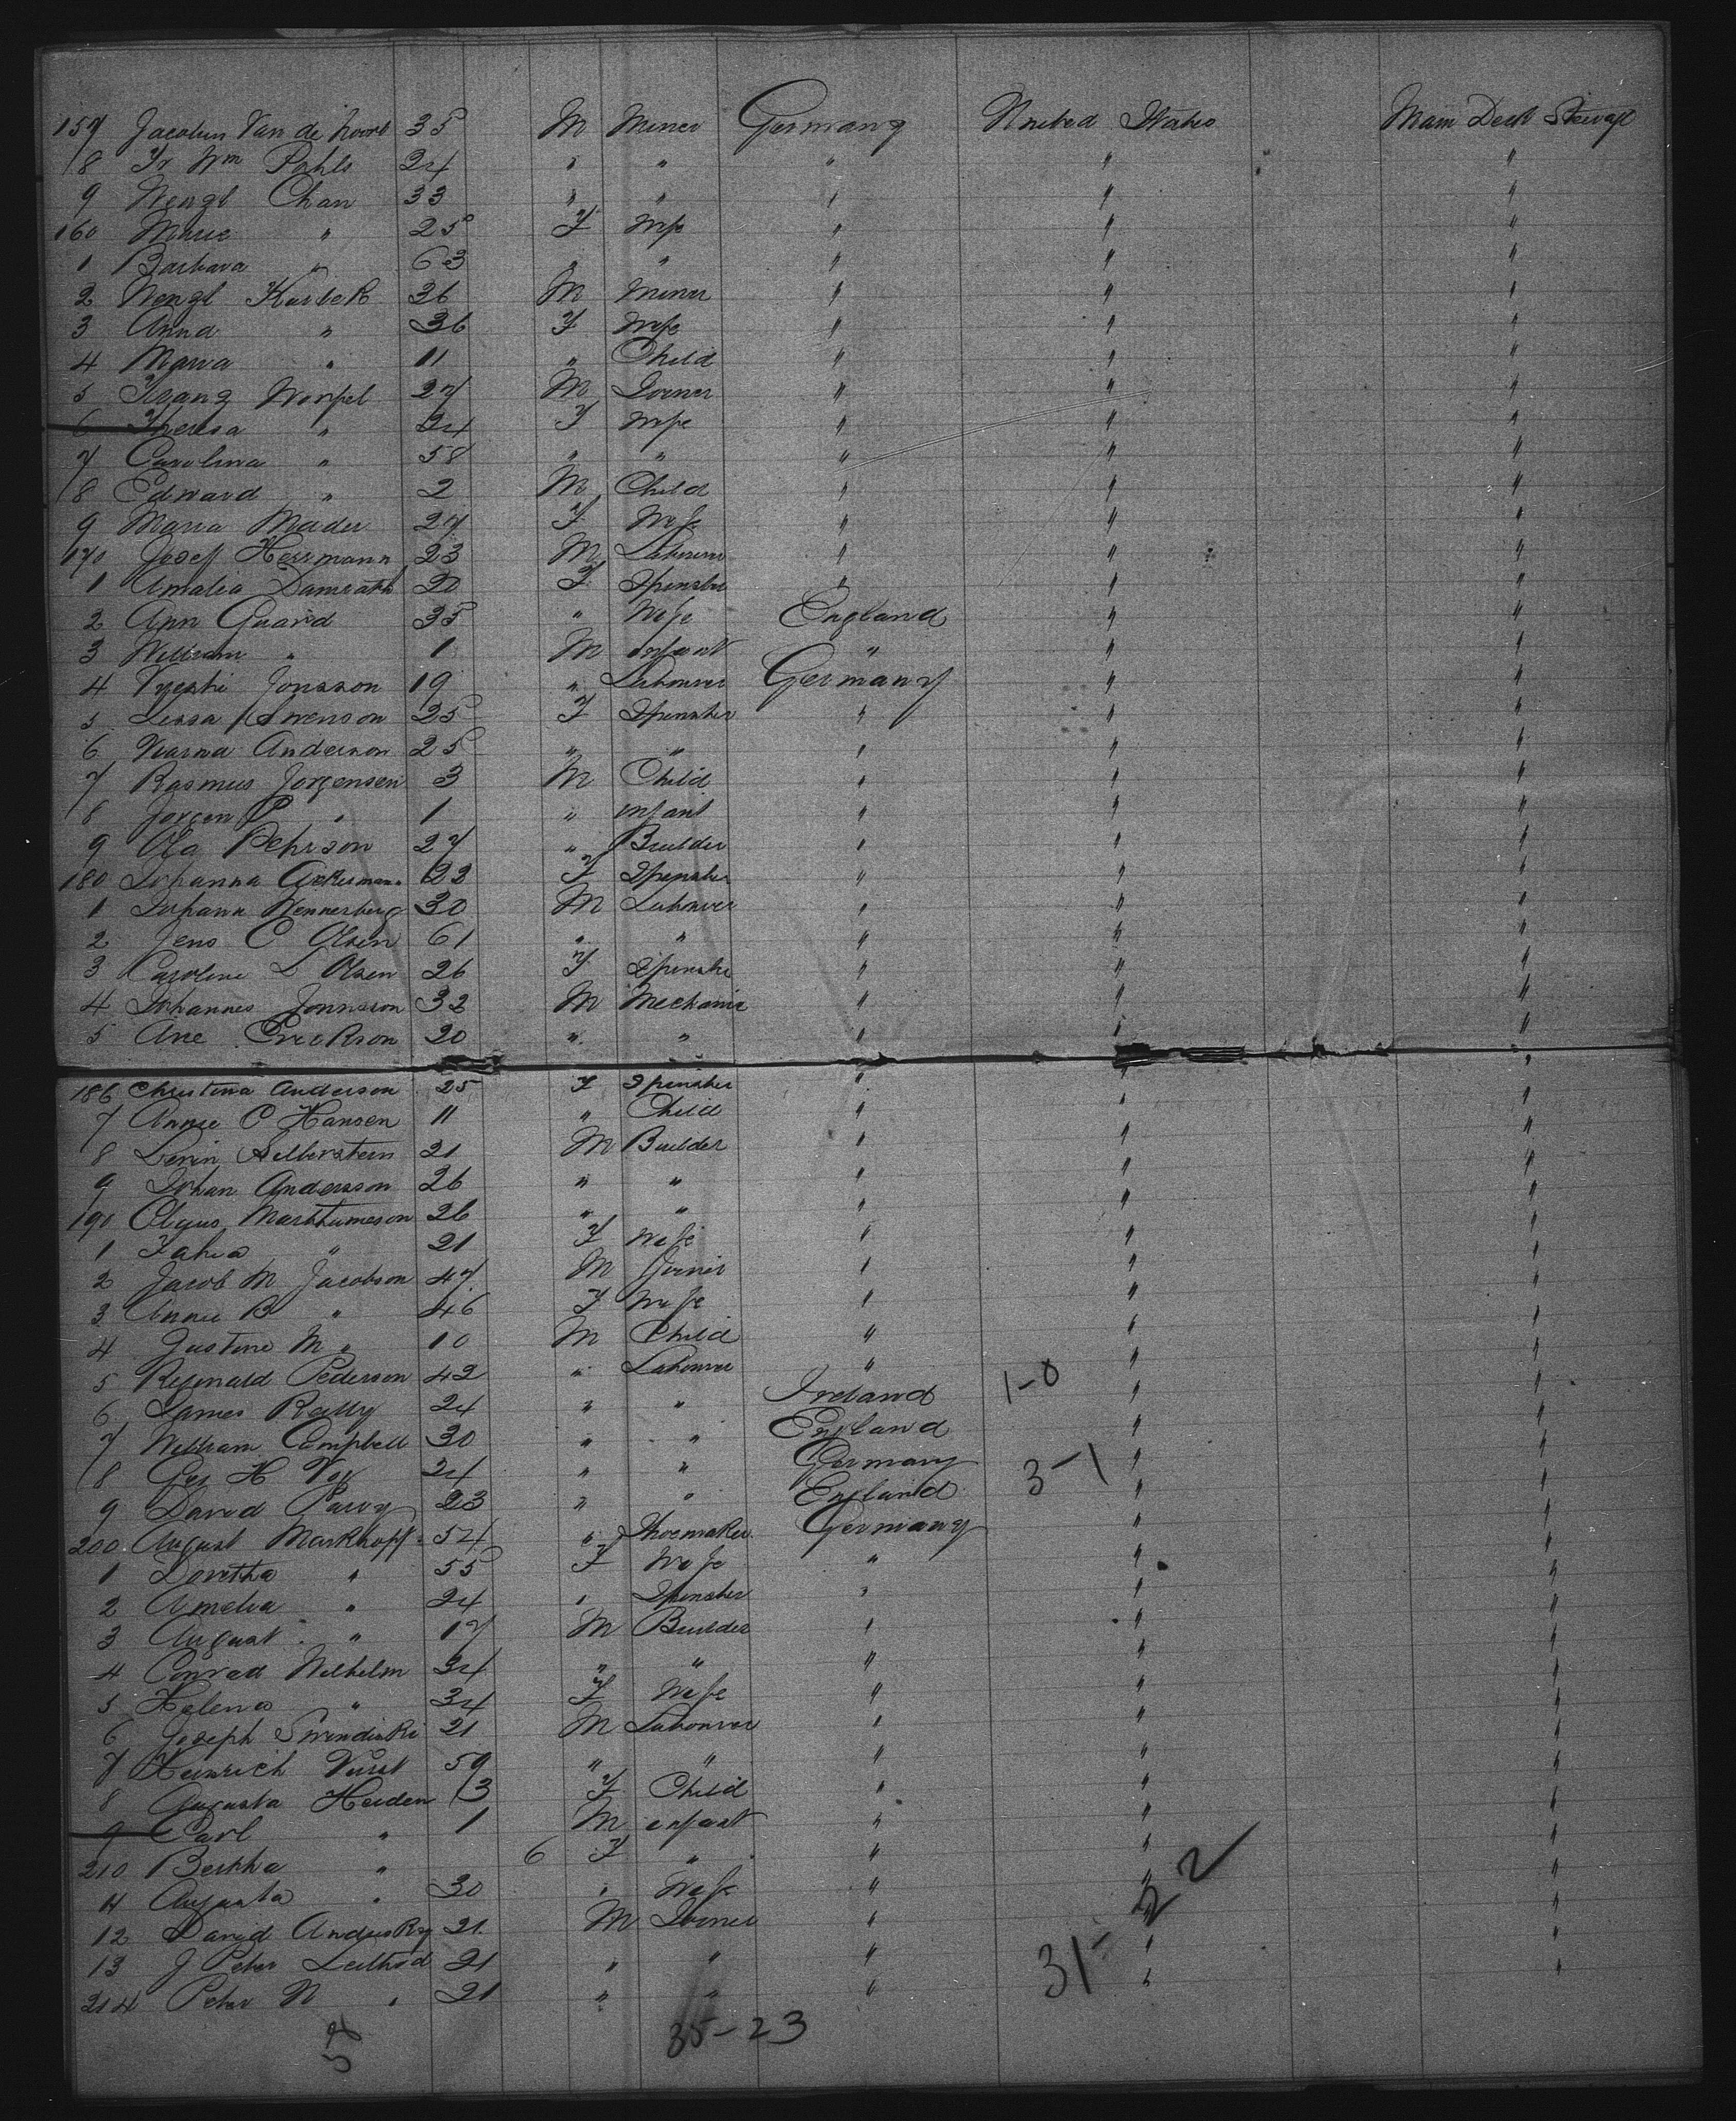 157 Jacobus Van de Noord 35 M Miner Germany United States Main Deck Steerage
8 Fr Wm Pahls 24 " " " " "
9 Wengl Chan 33 " " " " "
160 Marie " 25 F Wife " " "
1 Barbara " 63 " " " " "
2 Wengl Karbek 36 M Miner " " "
3 Anna " 36 F Wife " " "
4 Maria " 11 " Child " " "
5 Franz Worfel 27 M Joiner " " "
6 Theresa " 24 F Wife " " "
7 Carolina " 58 " " " " "
8 Edward " 2 M Child " " "
9 Maria Mader 27 F Wife " " "
170 Josef Herrmann 23 M Labourer " " "
1 Amalia Damrath 20 F Spinster " " "
2 Ann Guarid 35 " Wife England " "
3 William " 1 M infant " " "
4 Jonsson 19 " Labourer Germany " "
5 Lissa Swenson 25 F Spinster " " "
6 Anderson 25 " " " " "
7 Rasmus Jorgensen 3 M Child " " "
8 Jorgen P " 1 " infant " " "
9 Ola Pehrson 27 " Builder " " "
180 Johanna Ackermann 22 F Spinster " " "
1 Johann Wennerberg 30 M Labourer " " "
2 Jens C Olsen 61 " " " " "
3 Caroline L Olsen 26 F Spinster " " "
4 Johannes Jonnsson 32 M Mechanic " " "
5 Ane Erickson 20 " " " " "
186 Christina Anderson 25 F Spinster " " "
7 Annie C Hansen 11 " Child " " "
8 Levin Silberstein 21 M Builder " " "
9 Johan Andersson 26 " " " " "
190 Marthumeson 26 " " " " "
1 " 21 F Wife " " "
2 Jacob M Jacobson 47 M Joiner " " "
3 Annie B " 46 F Wife " " "
4 Justine M " 10 M Child " " "
5 Reginald Pederson 42 " Labourer " " "
6 James Reilly 24 " " Ireland 1-0 " "
7 William Campbell 30 " " England " "
8 Geo H Voy 24 " " Germany 3-1 " "
9 David Parry 23 " " England " "
200 August Markhoff 54 " Shoemaker Germany " "
1 Doretha " 55 F Wife " " "
2 Amelia " 24 " Spinster " " "
3 August " 17 M Builder " " "
4 Conrad Wilhelm 34 " " " " "
5 Helena " 34 F Wife " " "
6 Joseph Swindiski 21 M Labourer " " "
7 Heinrich Vurst 59 " " " " "
8 Augusta Heiden 3 F Child " " "
9 Carl " 1 M infant " " "
210 Bertha " 6 F " " " "
11 Augusta " 30 " Wife " " "
12 David Andusky 21 M Joiner " 31-22 " "
13 J Peter Leithod 21 " " " " "
214 Peter N " 21 " " " " "
52 35-23